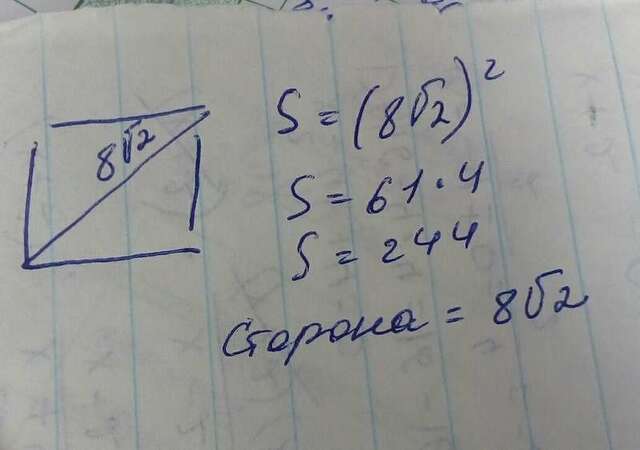 8√2
S = (8√2)²
S = 61 · 4
S = 244
Сторона = 8√2